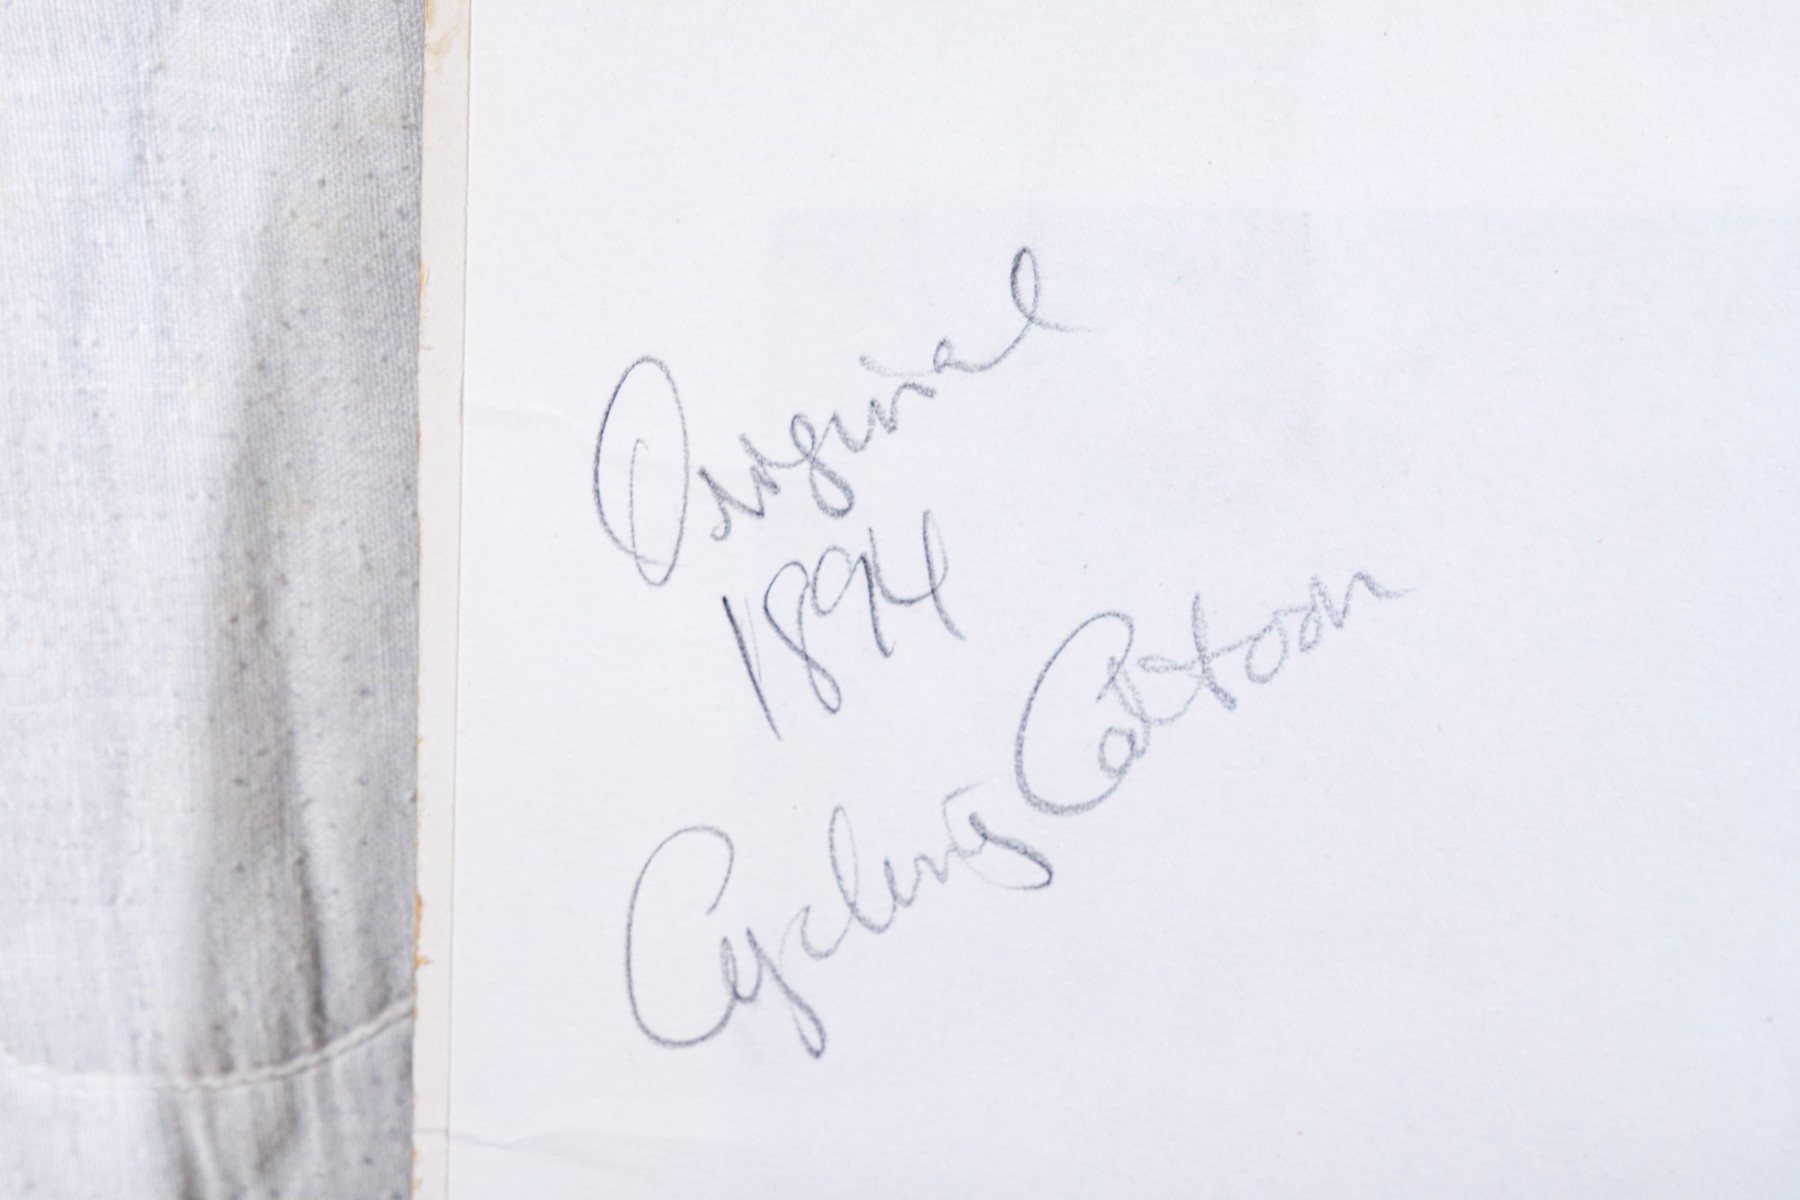 Original
1894
Cycling Cartoon